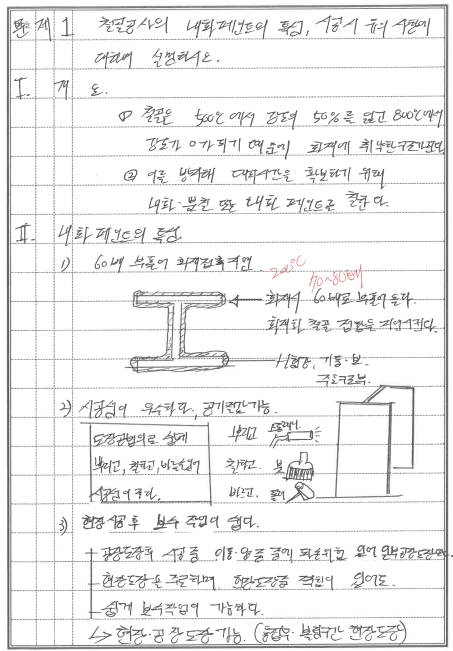 문제 1 철골공사의 내화페인트의 특성, 시공시 유의사항에
대하여 설명하시오.
I. 개 요.
① 철골은 500℃에서 강도의 50%를 잃고 800℃에서
강도가 0가 되기 때문에 화재에 취약한
② 이를 방지해 내화시간을 확보하기 위해
내화·분친 또는 내화 페인트로 칠한다.
II. 내화페인트의 특성
1) 60배 부풀어 화재접촉지연.
200℃
70~80배
화재시 60배로 부풀어 든다.
화재와 철골 접촉을 지연시킨다.
H형강, 기둥·보
주요 
2) 시공성이 우수하다, 공기단축가능.
도장공법의로 쉽게
뿌리고, 칠하고, 바를수있어
시공성이 좋다.
뿌리고 스프레이
칠하고 붓
바르고 롤러
3) 현장시공후 보수 작업이 쉽다.
공장도장후 시공중 이동·양중 중에 파손위험 있어 일부공장도장
- 현장도장을 주로하며, 현장도장을 적절히 있어도.
- 쉽게 보수작업이 가능하다.
↳ 현장·공장도장 가능. (용접부·볼팅구간 현장도장)